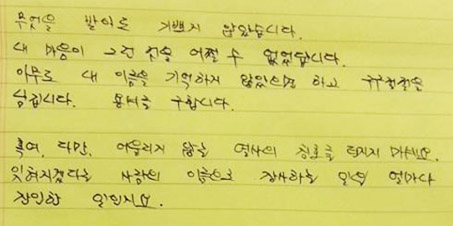 무엇을 받아도 기쁘지 않았습니다.
내 마음이 그런 것을 어쩔 수 없었답니다.
아무도 내 이름을 기억하지 않았으면 하고
남깁니다. 용서를 구합니다.
혹여, 다만, 어울리지 않을 열사의 칭호를 던지지 마세요.
잊혀지겠다는 사람의 이름으로 장사하는 일은 얼마나
잔인한 일인지요.